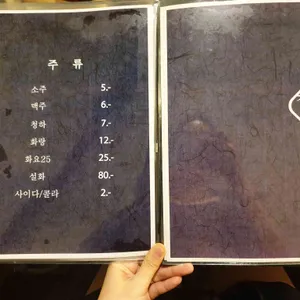 주 류
소주 5.-
맥주 6.-
청하 7.-
화랑 12.-
화요25 25.-
설화 80.-
사이다/콜라 2.-